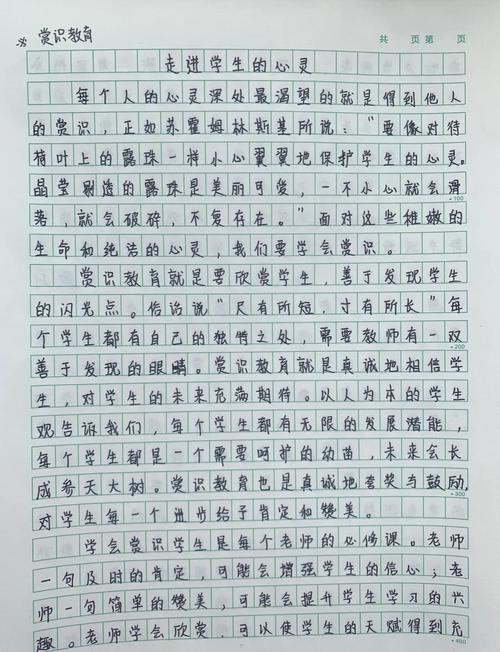 ※ 赏识教育
共 页 第 页
走进学生的心灵
每个人的心灵深处最渴望的就是得到他人
的赏识，正如苏霍姆林斯基所说：“要像对待
荷叶上的露珠一样小心翼翼地保护学生的心灵。
晶莹剔透的露珠是美丽可爱，一不小心就会滑
落，就会破碎，不复存在。”面对这些稚嫩的
+100
生命和纯洁的心灵，我们要学会赏识。
赏识教育就是要欣赏学生，善于发现学生
的闪光点。俗话说“尺有所短，寸有所长”每
个学生都有自己的独特之处，需要教师有一双
+200
善于发现的眼睛。赏识教育就是真诚地相信学
生，对学生的未来充满期待。以人为本的学生
观告诉我们，每个学生都有无限的发展潜能，
每个学生都是一个需要呵护的幼苗，未来会长
成参天大树。赏识教育也是真诚地夸奖与鼓励，
+300
对学生每一个进步给予肯定和赞美。
学会赏识学生是每个老师的必修课。老师
一句及时的肯定，可能会增强学生的信心；老
师一句简单的赞美，可能会提升学生学习的兴
趣。老师学会欣赏，可以使学生的天赋得到充
+400